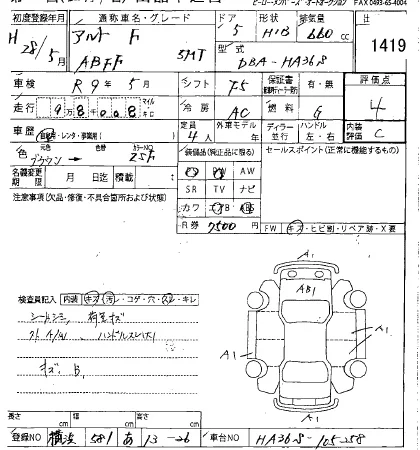 FAX 0493-65-4004
初度登録年月 通称車名・グレード ドア 形状 排気量 出
H 28/5月 アルト F 5 H/B 660cc 1419
ABFF 5MT 型式 DBA-HA36S
車検 R9年5月 シフト F5 保証書 有・無 評価点
走行 98,008 マイル キロ 冷房 AC 燃料 G 4
車歴 自家・レンタ・事業用 定員 4人 外車モデル ディラー 並行 ハンドル 左・右 内装評価 C
色 元色 ブラウン→ 色替 カラーNO 25F 装備品(純正品に限る) セールスポイント(正常に機能するもの)
名義変更期限 月 日迄 積載 t PS PW AW
注意事項(欠品・修復・不具合箇所および状態) SR TV ナビ
カワ エアB AB
R券 7500円 FW キズ・ヒビ割・リペア跡・X要
A1
検査員記入 内装 キズ・汚レ・コゲ・穴・スレ・キレ AB1
シートシミ、荷室キズ
ハンドルスレ
A1 A1
キズ、B
A1
長さ cm 幅 cm 高さ cm
登録NO 横浜 581 あ 13-26 車台NO HA36S-105258